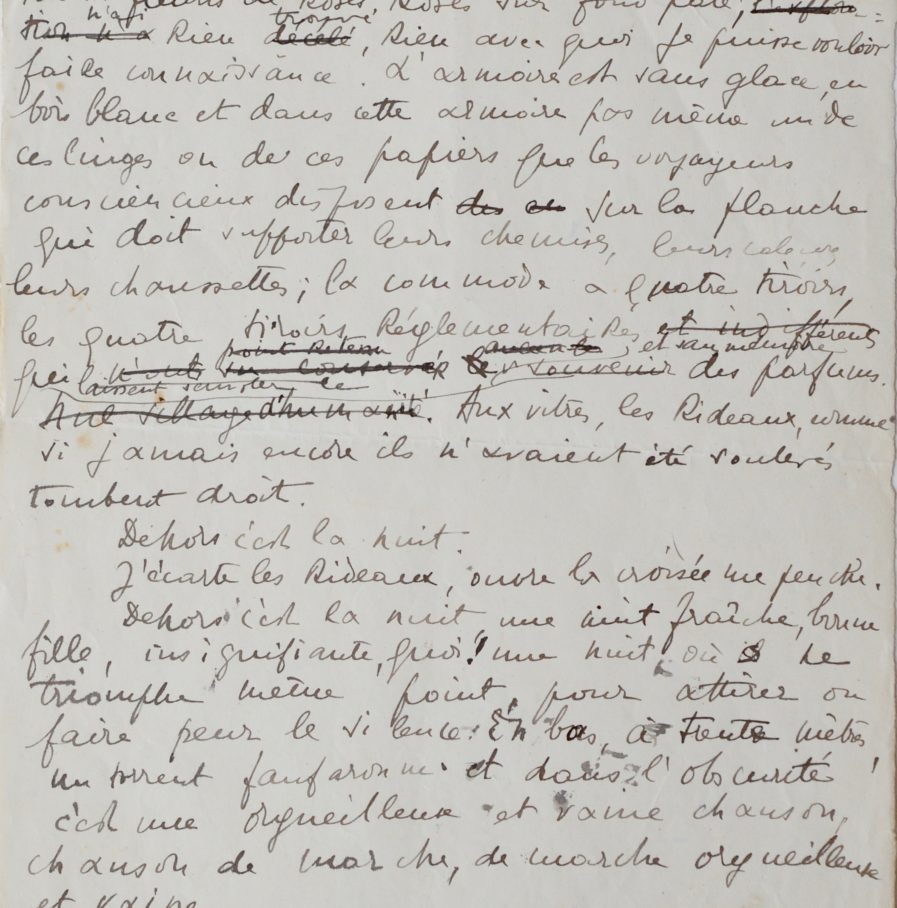 de Roses, Roses sur fond pale,
n'a Rien décélé trouvé, Rien avec quoi je puisse vouloir
faire connaissance. L'armoire est sans glace, en
bois blanc et dans cette armoire pas même un de
ces linges ou de ces papiers que les voyageurs
consciencieux disposent des en sur la planche
qui doit supporter leurs chemises, leurs caleçons
leurs chaussettes; la commode a quatre tiroirs,
les quatre tiroirs Réglementaires et indifférents
point retenu aucun et sans mémoire
qui n'ont su conserver le souvenir des parfums.
laissent
Nul sillage d'humanité. Aux vitres, les Rideaux, comme
si jamais encore ils n'avaient été soulevés
tombent droit.
Dehors c'est la nuit.
J'écarte les Rideaux, ouvre la croisée me penche.
Dehors c'est la nuit, une nuit fraîche, bonne
fille, insignifiante, quoi! une nuit où ne
triomphe même point, pour attirer ou
faire peur le silence. En bas, à trente mètres
un torrent fanfaronne et dans l'obscurité
c'est une orgueilleuse et vaine chanson,
chanson de marche, de marche orgueilleuse
et vaine